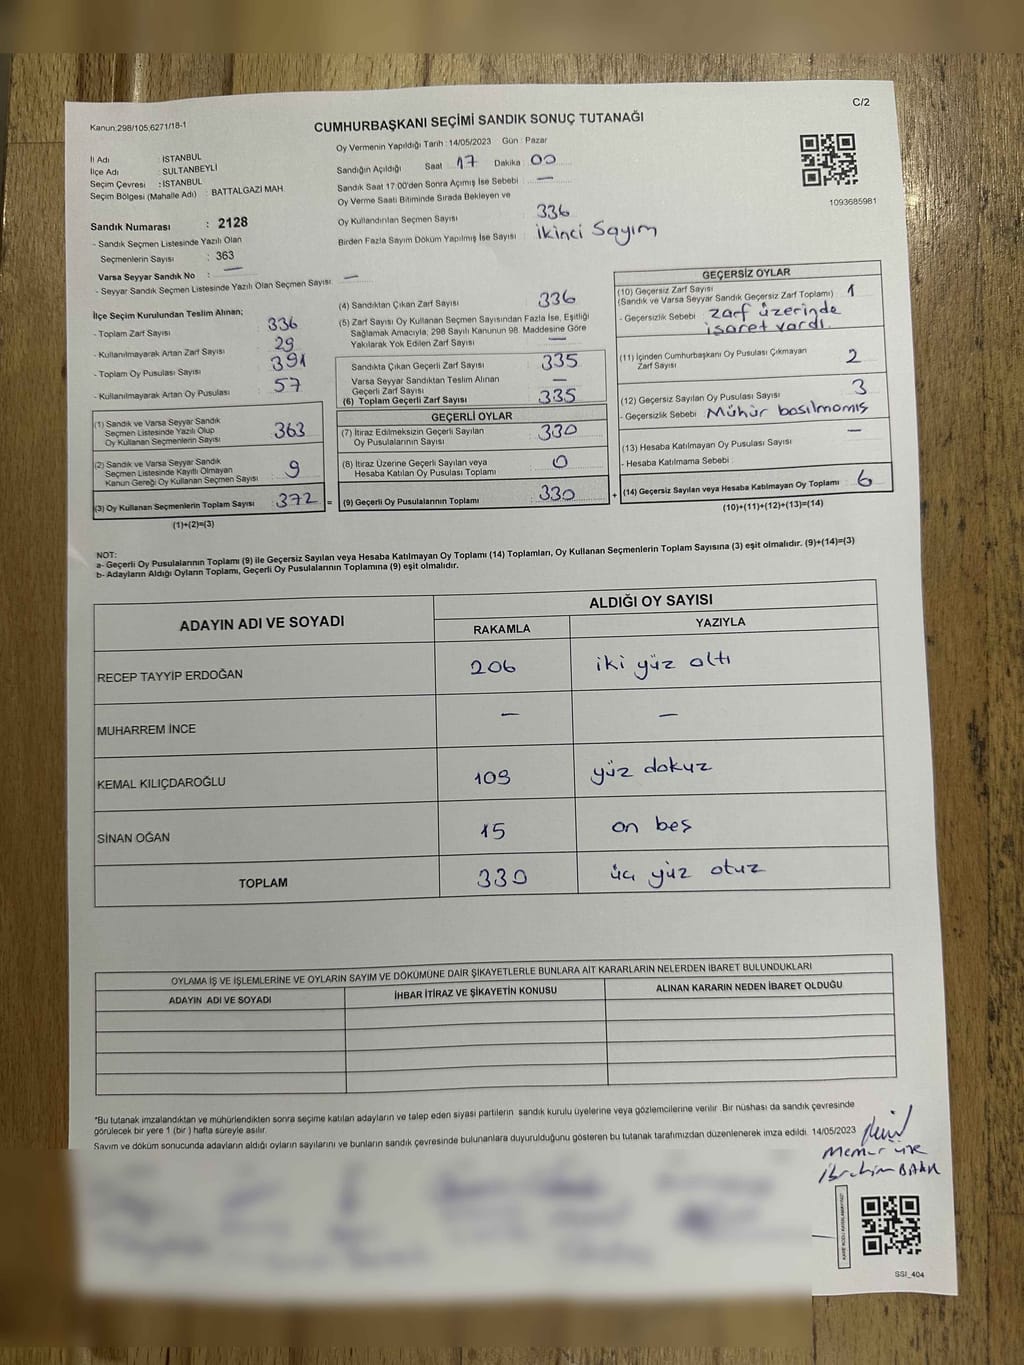 C/2
Kanun:298/105,6271/18-1
CUMHURBAŞKANI SEÇİMİ SANDIK SONUÇ TUTANAĞI
İl Adı : İSTANBUL
İlçe Adı : SULTANBEYLİ
Seçim Çevresi : İSTANBUL
Seçim Bölgesi (Mahalle Adı) : BATTALGAZİ MAH.
Sandık Numarası : 2128
- Sandık Seçmen Listesinde Yazılı Olan
Seçmenlerin Sayısı : 363
Varsa Seyyar Sandık No : —
- Seyyar Sandık Seçmen Listesinde Yazılı Olan Seçmen Sayısı: —
Oy Vermenin Yapıldığı Tarih : 14/05/2023 Gün : Pazar
Sandığın Açıldığı Saat 17 Dakika 00
Sandık Saat 17:00'den Sonra Açımış İse Sebebi : —
Oy Verme Saati Bitiminde Sırada Bekleyen ve
Oy Kullandırılan Seçmen Sayısı : 336
Birden Fazla Sayım Döküm Yapılmış İse Sayısı : ikinci Sayım
1093685981
İlçe Seçim Kurulundan Teslim Alınan;
- Toplam Zarf Sayısı 336
- Kullanılmayarak Artan Zarf Sayısı 29
- Toplam Oy Pusulası Sayısı 391
- Kullanılmayarak Artan Oy Pusulası 57
(1) Sandık ve Varsa Seyyar Sandık
Seçmen Listesinde Yazılı Olup
Oy Kullanan Seçmenlerin Sayısı 363
(2) Sandık ve Varsa Seyyar Sandık
Seçmen Listesinde Kayıtlı Olmayan
Kanun Gereği Oy Kullanan Seçmen Sayısı 9
(3) Oy Kullanan Seçmenlerin Toplam Sayısı 372 =
(1)+(2)=(3)
(4) Sandıktan Çıkan Zarf Sayısı 336
(5) Zarf Sayısı Oy Kullanan Seçmen Sayısından Fazla İse, Eşitliği
Sağlamak Amacıyla, 298 Sayılı Kanunun 98. Maddesine Göre
Yakılarak Yok Edilen Zarf Sayısı —
Sandıkta Çıkan Geçerli Zarf Sayısı 335
Varsa Seyyar Sandıktan Teslim Alınan
Geçerli Zarf Sayısı —
(6) Toplam Geçerli Zarf Sayısı 335
GEÇERLİ OYLAR
(7) İtiraz Edilmeksizin Geçerli Sayılan
Oy Pusulalarının Sayısı 330
(8) İtiraz Üzerine Geçerli Sayılan veya
Hesaba Katılan Oy Pusulası Toplamı 0
(9) Geçerli Oy Pusulalarının Toplamı 330 +
GEÇERSİZ OYLAR
(10) Geçersiz Zarf Sayısı 1
(Sandık ve Varsa Seyyar Sandık Geçersiz Zarf Toplamı)
- Geçersizlik Sebebi : zarf üzerinde
işaret vardı.
(11) İçinden Cumhurbaşkanı Oy Pusulası Çıkmayan
Zarf Sayısı 2
(12) Geçersiz Sayılan Oy Pusulası Sayısı 3
- Geçersizlik Sebebi : Mühür basılmamış
(13) Hesaba Katılmayan Oy Pusulası Sayısı —
- Hesaba Katılmama Sebebi :
(14) Geçersiz Sayılan veya Hesaba Katılmayan Oy Toplamı 6
(10)+(11)+(12)+(13)=(14)
NOT:
a- Geçerli Oy Pusulalarının Toplamı (9) ile Geçersiz Sayılan veya Hesaba Katılmayan Oy Toplamı (14) Toplamları, Oy Kullanan Seçmenlerin Toplam Sayısına (3) eşit olmalıdır. (9)+(14)=(3)
b- Adayların Aldığı Oyların Toplamı, Geçerli Oy Pusulalarının Toplamına (9) eşit olmalıdır.
ADAYIN ADI VE SOYADI
ALDIĞI OY SAYISI
RAKAMLA YAZIYLA
RECEP TAYYİP ERDOĞAN 206 iki yüz altı
MUHARREM İNCE — —
KEMAL KILIÇDAROĞLU 109 yüz dokuz
SİNAN OĞAN 15 on beş
TOPLAM 330 üç yüz otuz
OYLAMA İŞ VE İŞLEMLERİNE VE OYLARIN SAYIM VE DÖKÜMÜNE DAİR ŞİKAYETLERLE BUNLARA AİT KARARLARIN NELERDEN İBARET BULUNDUKLARI
ADAYIN ADI VE SOYADI İHBAR İTİRAZ VE ŞİKAYETİN KONUSU ALINAN KARARIN NEDEN İBARET OLDUĞU
*Bu tutanak imzalandıktan ve mühürlendikten sonra seçime katılan adayların ve talep eden siyasi partilerin sandık kurulu üyelerine veya gözlemcilerine verilir. Bir nüshası da sandık çevresinde
görülecek bir yere 1 (bir) hafta süreyle asılır.
Sayım ve döküm sonucunda adayların aldığı oyların sayılarını ve bunların sandık çevresinde bulunanlara duyurulduğunu gösteren bu tutanak tarafımızdan düzenlenerek imza edildi. 14/05/2023
Memur üye
İbrahim
SSI_404